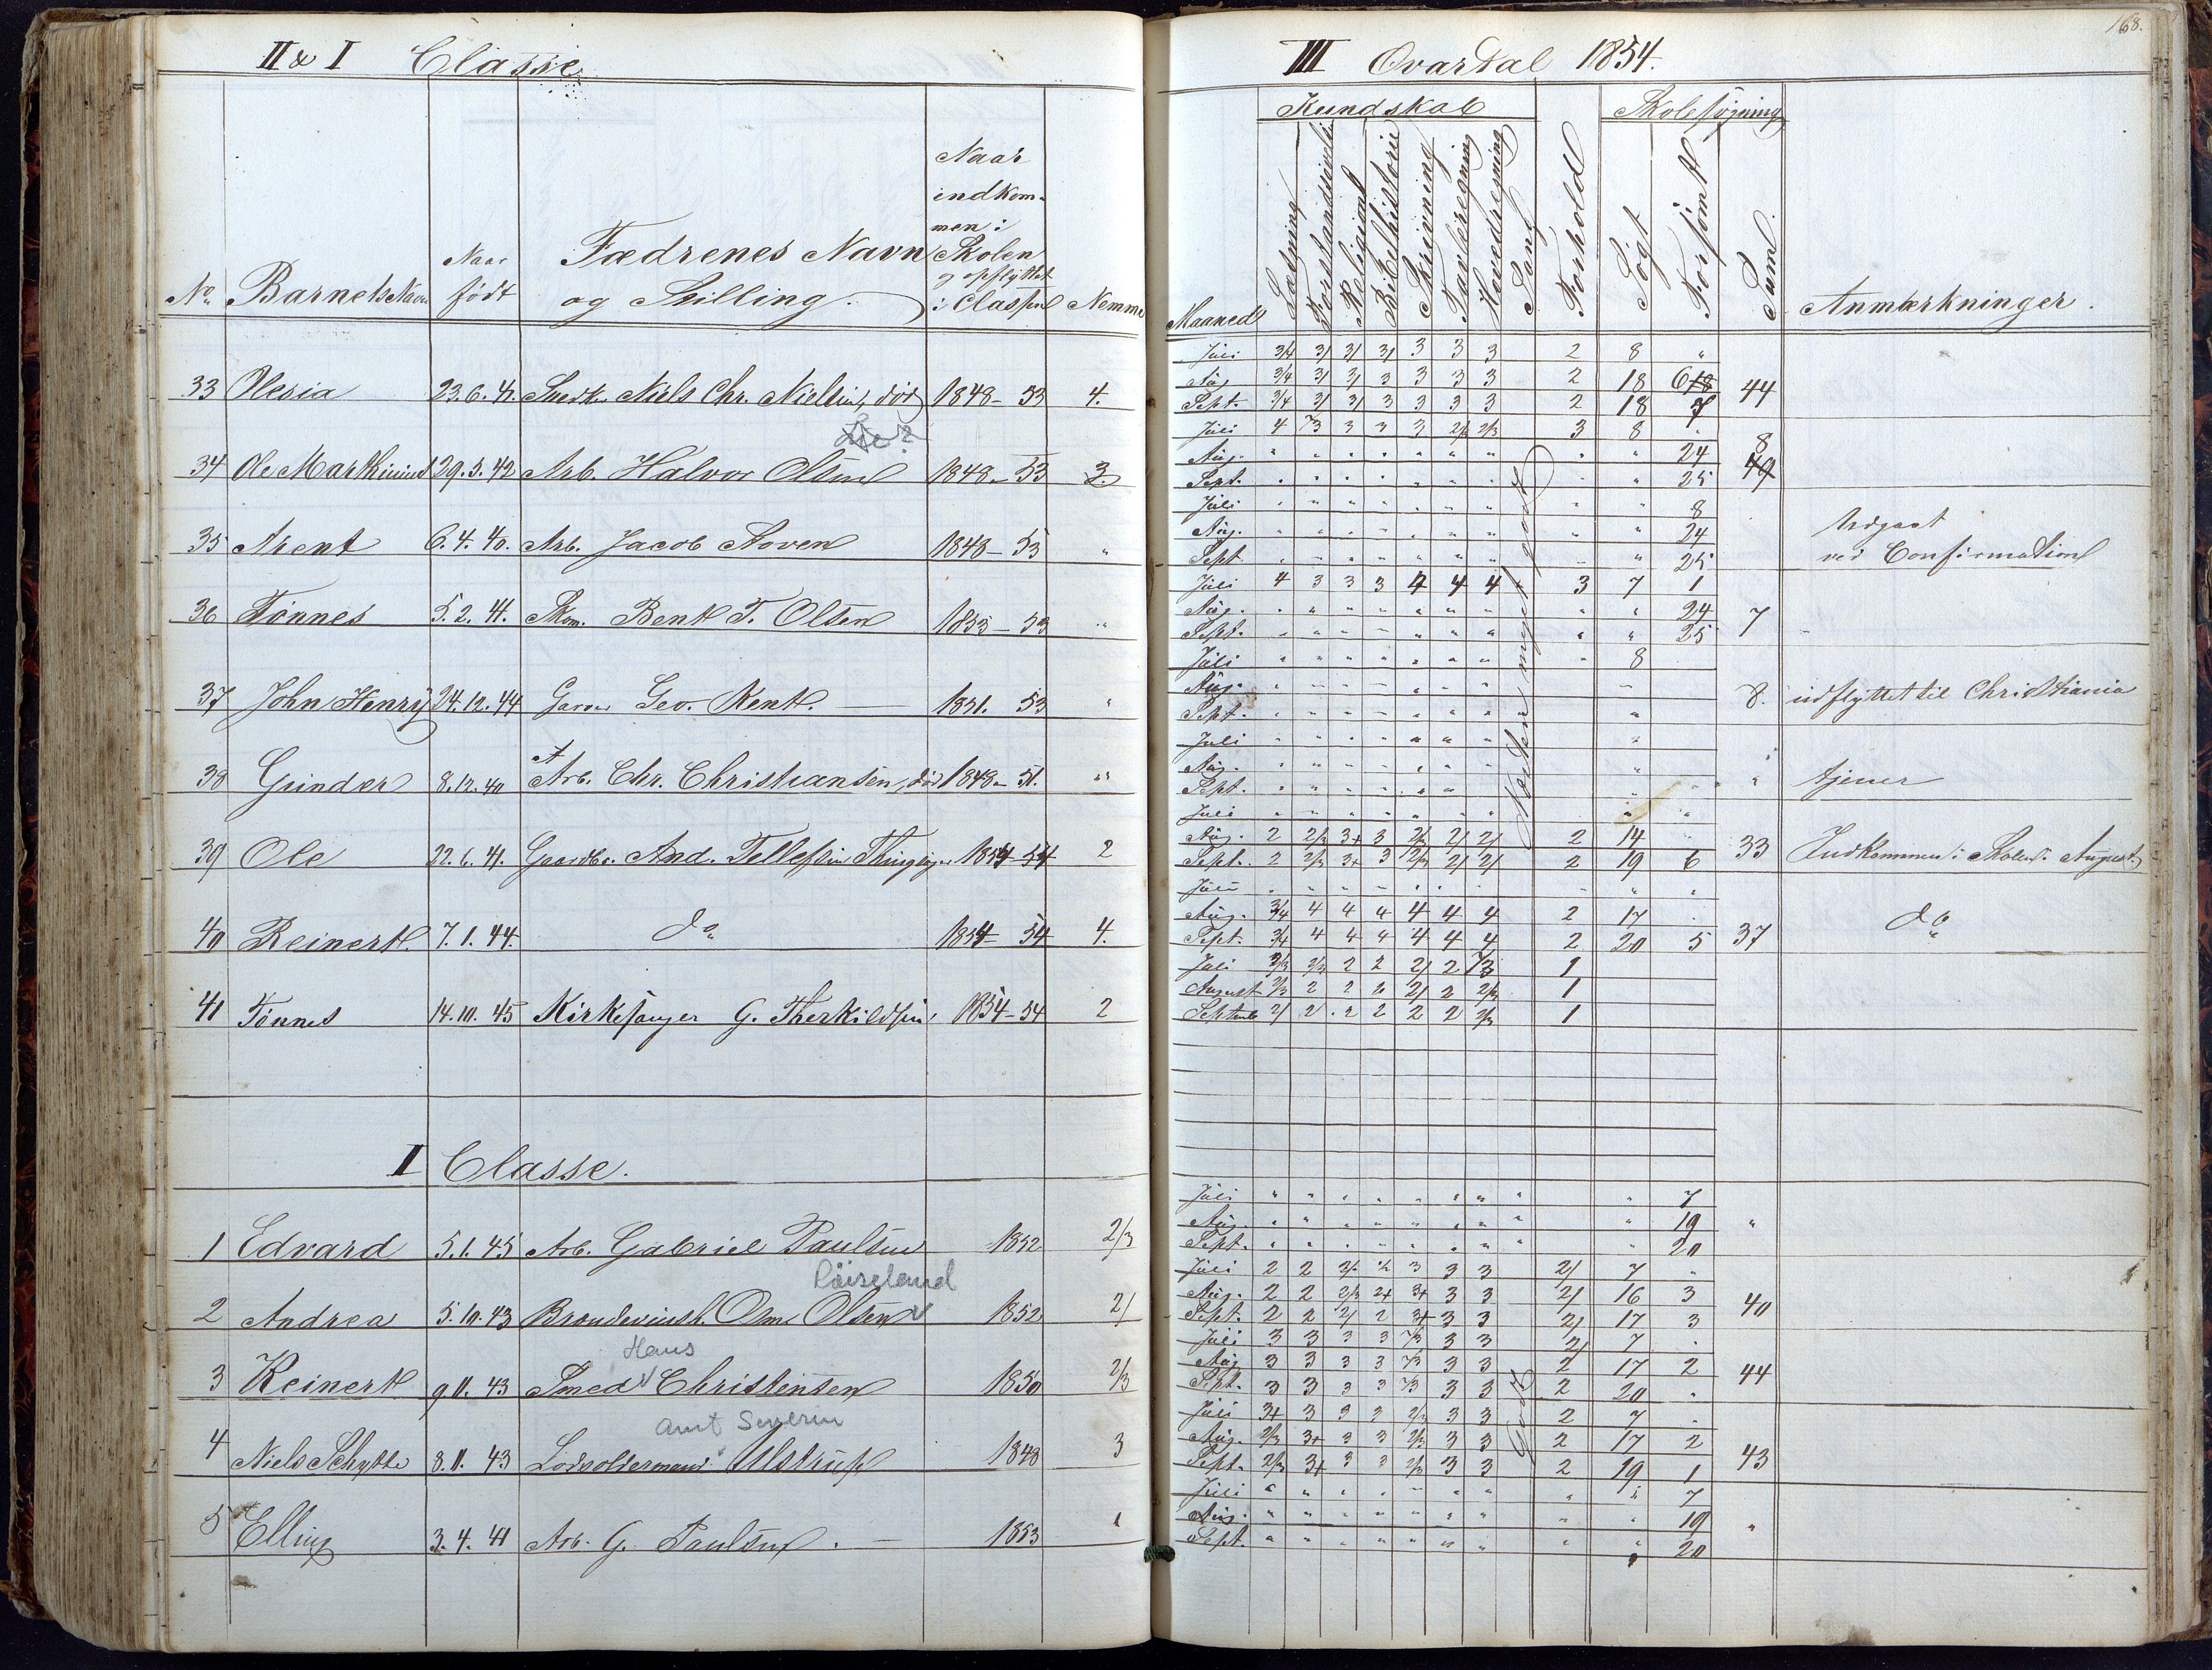 II & I Classe
III Qvartal 1854.
168.
No Barnets Navn Naar født Fædrenes Navn og Stilling. Naar indkommen i Skolen og opflyttet i Classen Nemme
Maaned Kundskab Læsning Forstandsøvelse Religion Bibelhistorie Skrivning Tavleregning Hovedregning Sang Forhold Skolesøgning Søgt Forsømt Sum. Anmærkninger.
33 Olesia 23.6.41. Snedk. Niels Chr. Nielsen, død 1848-53 4.
Juli 3/4 3/ 3/ 3/ 3 3 3 2 8 "
Aug 3/4 3/ 3/ 3 3 3 3 2 18 6 44
Sept. 3/4 3/ 3/ 3 3 3 3 2 18 7
34 Ole Marthinius 29.3.42 Arb. Halvor Olsen 1848-53 3.
Juli 4 /3 3 3 3 2/3 2/3 3 8 "
Aug. " " " " " " " " " 24 8
Sept. " " " " " " " " " 25 49
35 Arent 6.4.40. Arb. Jacob Aoven 1848-53 "
Juli " " " " " " " " " 8
Aug. " " " " " " " " " 24 Udgaat
Sept " " " " " " " " " 25 ved Confirmation
36 Tønnes 5.2.41. Skom. Bent T. Olsen 1853-53 "
Juli 4 3 3 3 4 4 4 3 7 1
Aug. " " " " " " " " " 24 7
Sept. " " " " " " " " " 25
37 John Henry 24.12.44 Garver Geo. Kent. 1851. 53 "
Juli " " " " " " " " 8
Aug. " " " " " " " " 8. udflyttet til Christiania
Sept. " " " " " " " "
38 Gunder 8.12.40 Arb. Chr. Christiansen, død 1848-51. "
Juli " " " " " " " "
Aug. " " " " " " " " " tjener
Sept. " " " " " " "
39 Ole 22.6.41. Gaardbr. And. Tellefsen 1854-54 2
Juli " " " " " " " " "
Aug. 2 2/3 3+ 3 2/3 2/ 2/ 2 14 " 33 Indkommen i Skolen i August
Sept. 2 2/3 3+ 3 2/3 2/ 2/ 2 19 6
40 Reinert. 7.1.44. do 1854-54 4.
Juli " " " " " " " " "
Aug. 3/4 4 4 4 4 4 4 2 17 " do
Sept. 3/4 4 4 4 4 4 4 2 20 5 37
41 Tønnes 14.10.45 Kirkesanger G. Therkildsen 1854-54 2
Juli 2/3 2/3 2 2 2/ 2 /3 1
August 2/3 2 2 2 2/ 2 2/3 1
Septemb 2/ 2 2 2 2 2 2/3 1
Noten meget godt
I Classe.
1 Edvard 5.1.45 Arb. Gabriel Paulsen 1852 2/3
Juli " " " " " " " " " 7
Aug. " " " " " " " " " 19 "
Sept. " " " " " " " " " 20
2 Andrea 5.10.43 Brændevinsb. Osm. Olsen 1852 2/
Juli 2 2 2/3 2 3 3 3 2/ 7 "
Aug. 2 2 2/3 2+ 3+ 3 3 2/ 16 3 40
Sept. 2 2 2/ 2 3+ 3 3 2/ 17 3
Hans
3 Reinert 9.11.43 Smed Christensen 1850 2/3
Juli 3 3 3 3 /3 3 3 2/ 7 "
Aug 3 3 3 3 /3 3 3 2 17 2 44
Sept. 3 3 3 3 /3 3 3 2 20 "
Amt Severin
4 Niels Schytte 8.11.43 Lodsoldermand Ulstrup 1848 3
Juli 3+ 3 3 3 2/3 3 3 2 7 "
Aug. 2/3 3+ 3 3 2/3 3 3 2 17 2
Sept. 2/3 3+ 3 3 2/3 3 3 2 19 1 43
Godt
5 Elling 3.4.41 Arb. G. Paulsen. 1853 "
Juli " " " " " " " " " 7
Aug. " " " " " " " " " 19 "
Sept. " " " " " " " " " 20